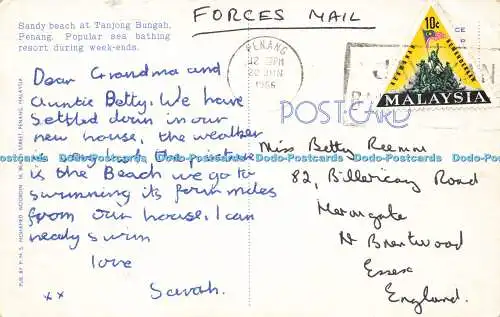 Sandy beach at Tanjong Bungah,
Penang. Popular sea bathing
resort during week-ends.
FORCES MAIL
PENANG
1966
10c
MALAYSIA
POSTCARD
Dear Grandma and
Auntie Betty. We have
settled down in our
new house, the weather
is very hot. The picture
is the Beach we go to
swimming its four miles
from our house. I can
nearly swim
love
Sarah.
xx
Miss Betty
82, Billericay Road
Herongate
Nr Brentwood
Essex
England.
PUB. BY P.M.S. MOHAMED NOORDIN STREET, PENANG, MALAYSIA
Dodo-Postcards Dodo-Postcards Dodo-Postcards Dodo-Postcards Dodo-Postcards